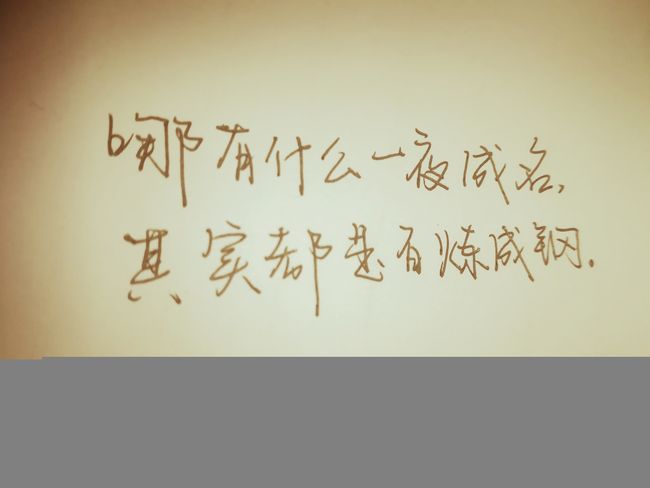 哪有什么一夜成名,
其实都是百炼成钢.